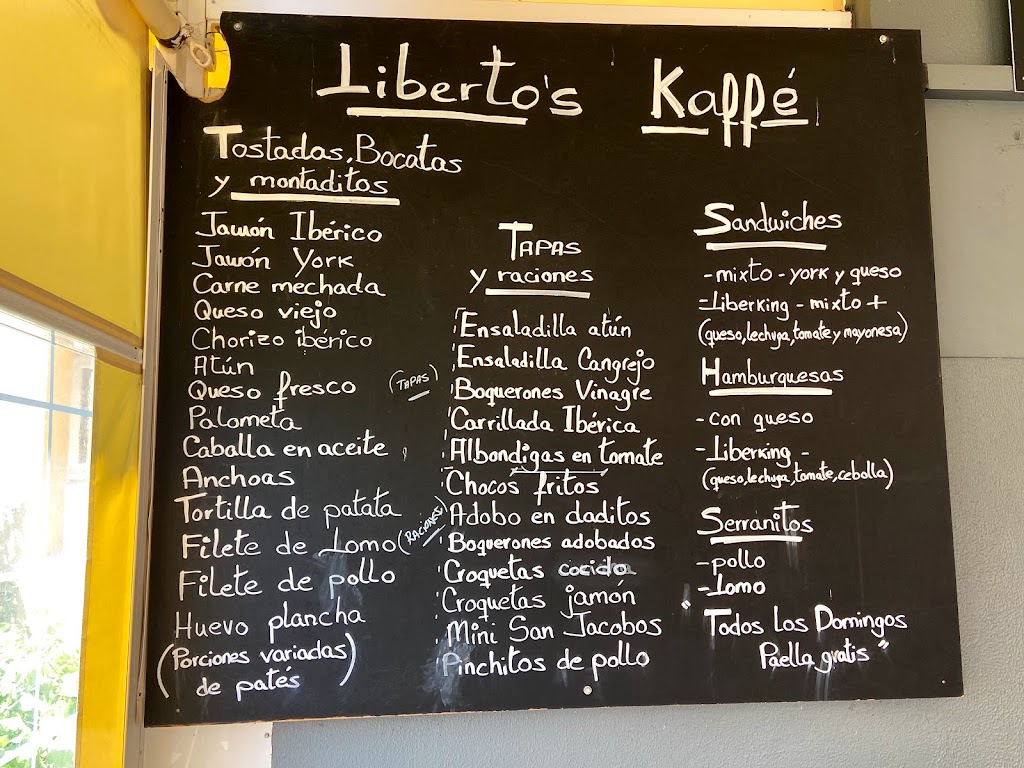 Liberto's Kaffé
Tostadas, Bocatas
y montaditos
Jamón Ibérico
Jamón York
Carne mechada
Queso viejo
Chorizo ibérico
Atún
Queso fresco
Palometa
Caballa en aceite
Anchoas
Tortilla de patata
Filete de Lomo
Filete de pollo
Huevo plancha
(Porciones variadas
de patés)
TAPAS
y raciones
(TAPAS)
Ensaladilla atún
Ensaladilla Cangrejo
Boquerones Vinagre
Carrillada Ibérica
Albondigas en tomate
(RACIONES)
Chocos fritos
Adobo en daditos
Boquerones adobados
Croquetas cocido
Croquetas jamón
Mini San Jacobos
Pinchitos de pollo
Sandwiches
- mixto - york y queso
- Liberking - mixto +
(queso, lechuga, tomate y mayonesa)
Hamburguesas
- con queso
- Liberking -
(queso, lechuga, tomate, cebolla)
Serranitos
- pollo
- Lomo
"Todos los Domingos
Paella gratis"